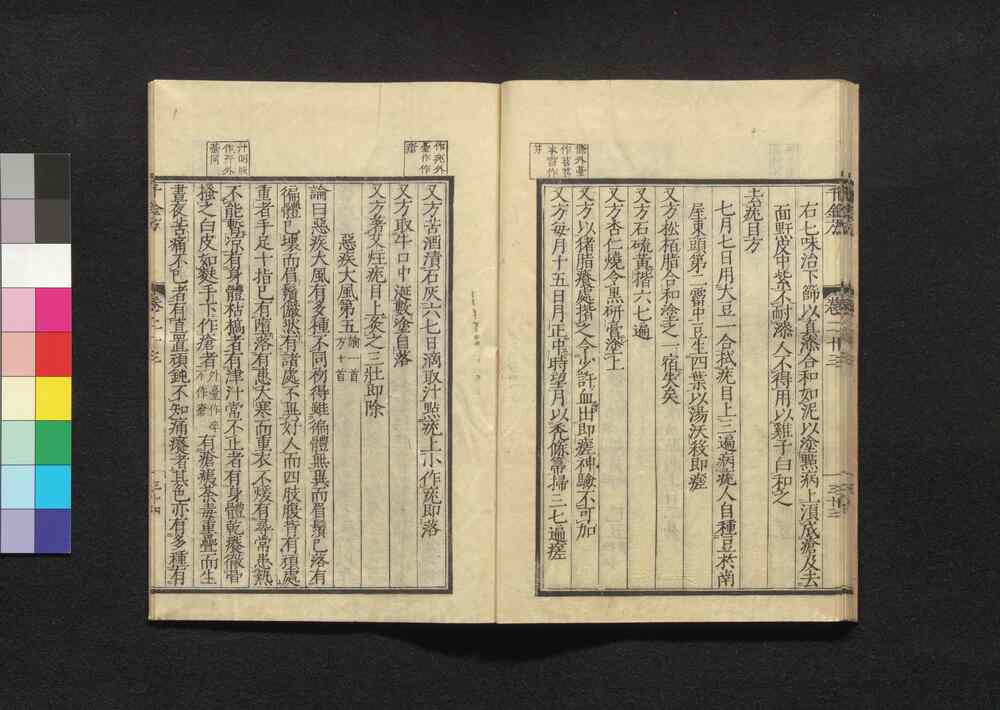 右七味治下篩以真漆合和如泥以塗點病上須成瘡及去
面䵟皮中紫不耐漆人不得用以雞子白和之
去疣目方
七月七日用大豆一合拭疣目上三遍病疣人自種豆於南
屋東頭第二霤中豆生四葉以湯沃殺即瘥
又方松栢脂合和塗之一宿失矣
又方石硫黃揩六七遍
又方杏仁燒令黑研膏塗上
又方以猪脂癢處揩之令少許血出即瘥神驗不可加
又方每月十五日月正中時望月以禿條箒掃三七遍瘥
又方苦酒漬石灰六七日滴取汁點疣上小作瘡即落
又方取牛口中涎數塗自落
又方著艾炷疣目上灸之三壯即除
惡疾大風第五 論一首 方十首
論曰惡疾大風有多種不同初得雖徧體無異而眉鬚已落有
徧體已壞而眉鬚儼然有諸處不異好人而四肢腹背有頑處
重者手足十指已有墮落有患大寒而重衣不煖有尋常患熱
不能暫凉有身體枯槁者有津汁常不止者有身體乾癢徹骨
搔之白皮如麩手下作瘡者 外臺作卒不作瘡 有瘡痍荼毒重疊而生
晝夜苦痛不已者有直置頑鈍不知痛癢者其色亦有多種有
千金方
卷二十三